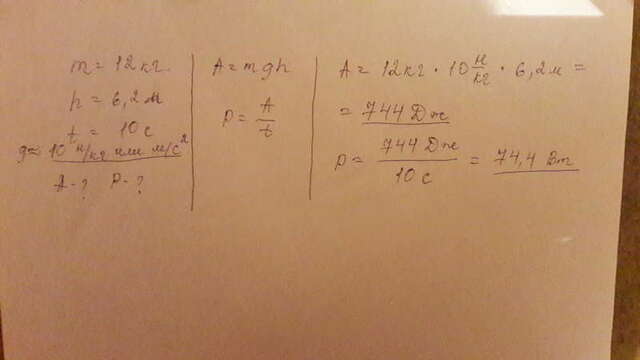 m = 12 кг.
h = 6,2 м
t = 10 с
g = 10 н/кг или м/с²
A - ? P - ?
A = mgh
P = A/t
A = 12 кг · 10 н/кг · 6,2 м =
= 744 Дж
P = 744 Дж / 10 с = 74,4 Вт